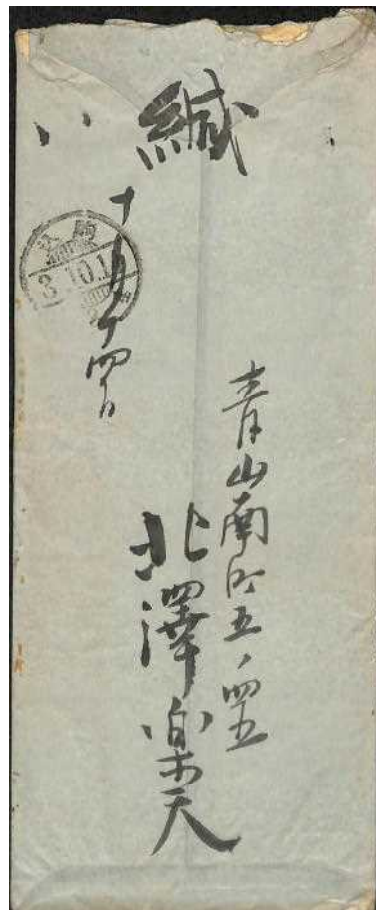 緘
青山南町五ノ四五
北澤楽天
十月十四日
3.10.1